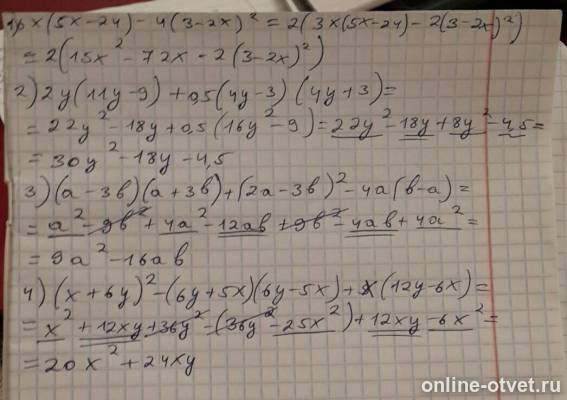 1) 6x(5x-24)-4(3-2x)² = 2(3x(5x-24)-2(3-2x)²)
= 2(15x²-72x-2(3-2x)²)
2) 2y(11y-9)+0,5(4y-3)(4y+3)=
= 22y²-18y+0,5(16y²-9)=22y²-18y+8y²-4,5=
= 30y²-18y-4,5
3) (a-3b)(a+3b)+(2a-3b)²-4a(b-a)=
= a²-9b²+4a²-12ab+9b²-4ab+4a²=
= 9a²-16ab
4) (x+6y)²-(6y+5x)(6y-5x)+x(12y-6x)=
= x²+12xy+36y²-(36y²-25x²)+12xy-6x²=
= 20x²+24xy
online-otvet.ru